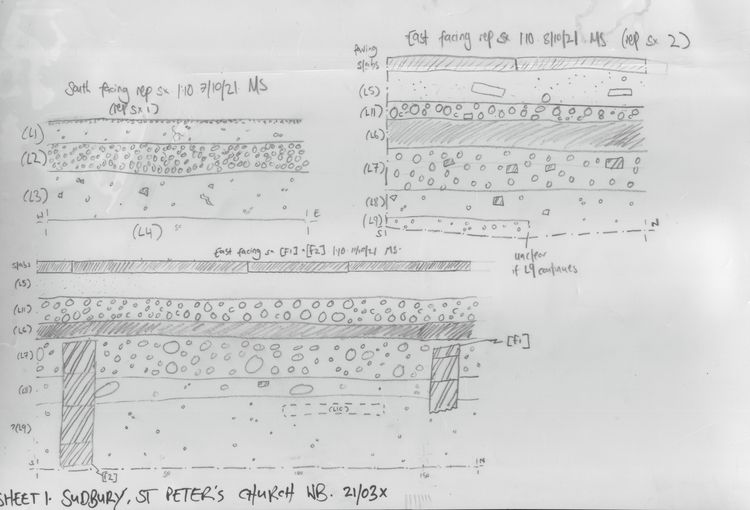 South facing rep sx 1:10 7/10/21 MS
(rep sx 1)
(L1)
(L2)
(L3)
W
E
(L4)
East facing rep sx 1:10 8/10/21 MS (rep sx 2)
paving
slabs
(L5)
(L11)
(L6)
(L7)
(L8)
(L9)
S
N
unclear
if L9 continues
East facing sx [F1] + [F2] 1:10 11/10/21 MS.
slabs
(L5)
(L11)
(L6)
(L7)
(L8)
?(L9)
(L10)
[F1]
[F2]
S
50
100
150
N
SHEET 1. SUDBURY, ST PETER'S CHURCH WB. 21/03X